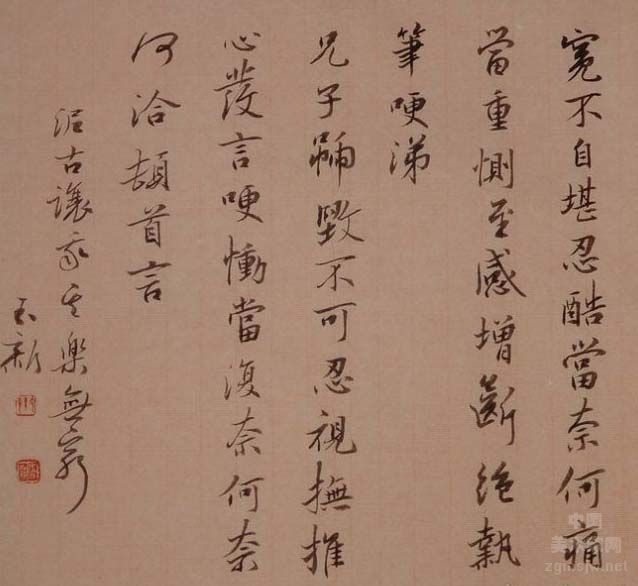 寃不自堪忍酷當奈何痛
當重惻至感增斷絕執
筆哽涕
兄子踊毀不可忍視撫摧
心發言哽慟當復奈何奈
何洽頓首言
泥古讓我其樂無窮
玉新
中国
美术家网